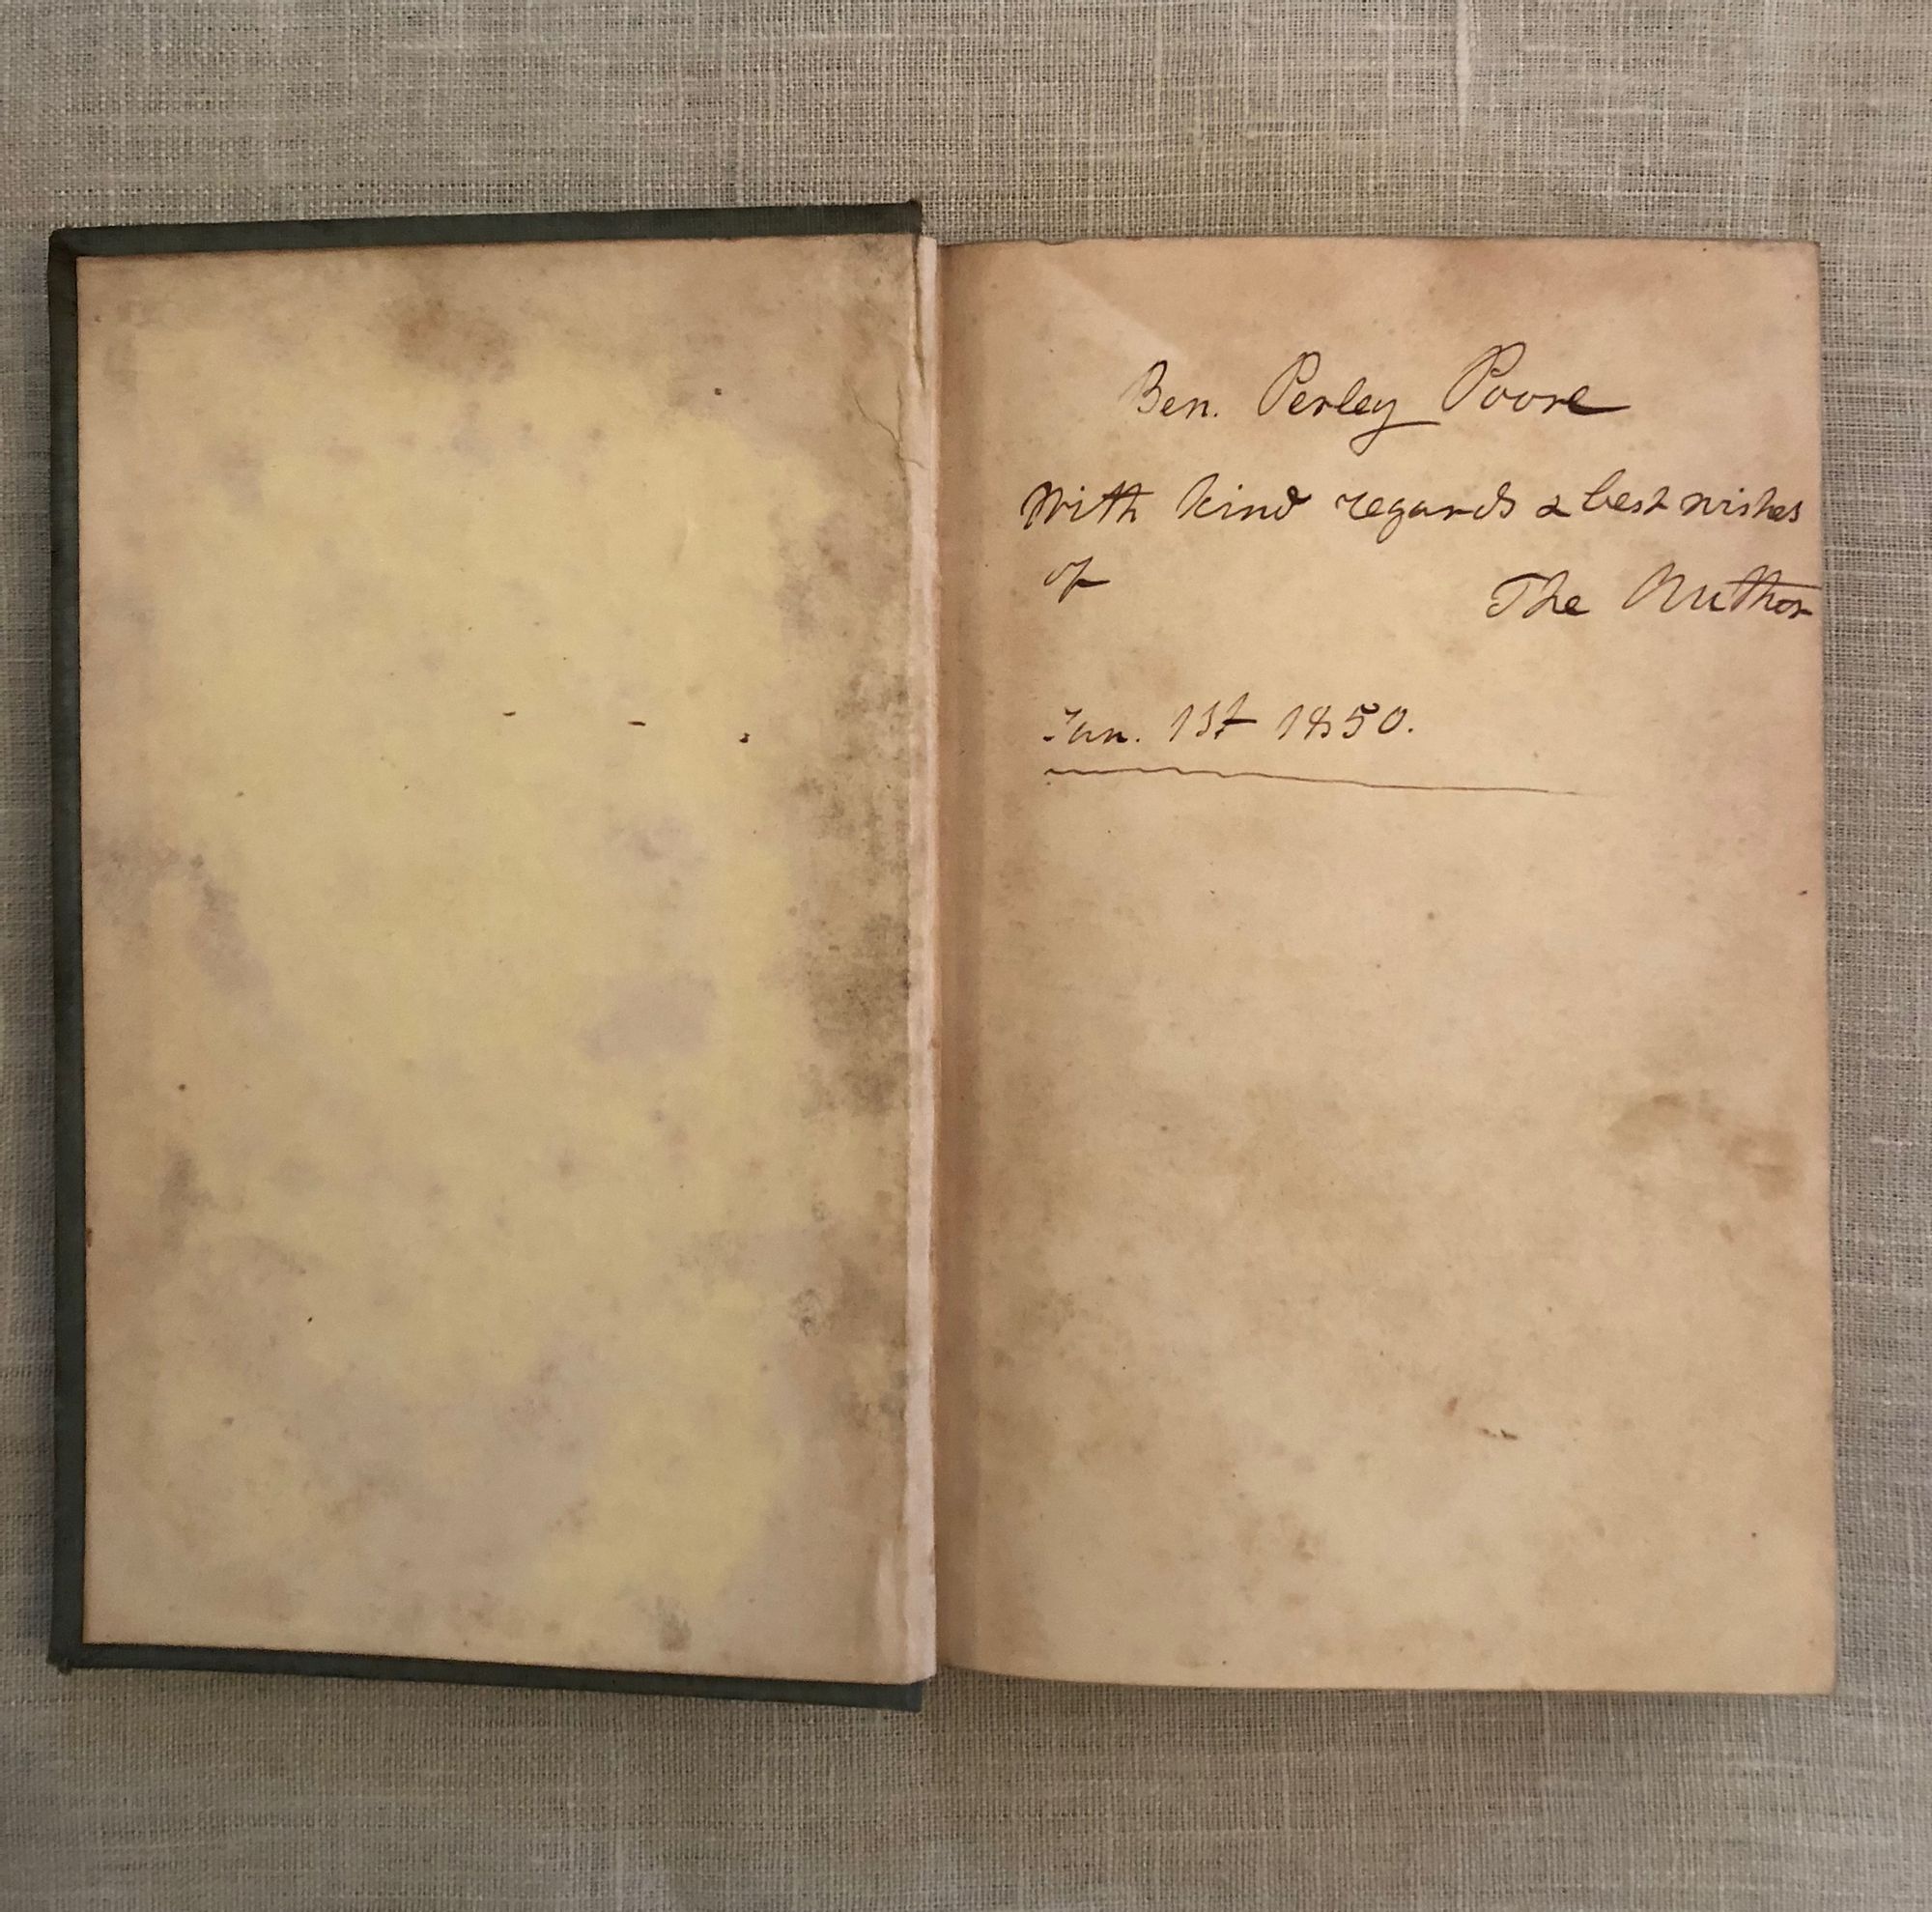 Ben. Perley Poore
With kind regards & best wishes
of The Author
Jan. 1st 1850.